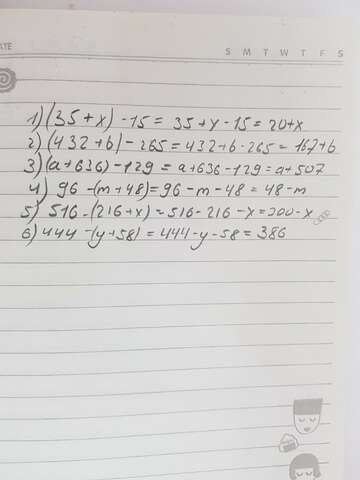 ATE
S M T W T F S
1) (35 + x) - 15 = 35 + x - 15 = 20 + x
2) (432 + b) - 265 = 432 + b - 265 = 167 + b
3) (a + 636) - 129 = a + 636 - 129 = a + 507
4) 96 - (m + 48) = 96 - m - 48 = 48 - m
5) 516 - (216 + x) = 516 - 216 - x = 300 - x
6) 444 - (y + 58) = 444 - y - 58 = 386